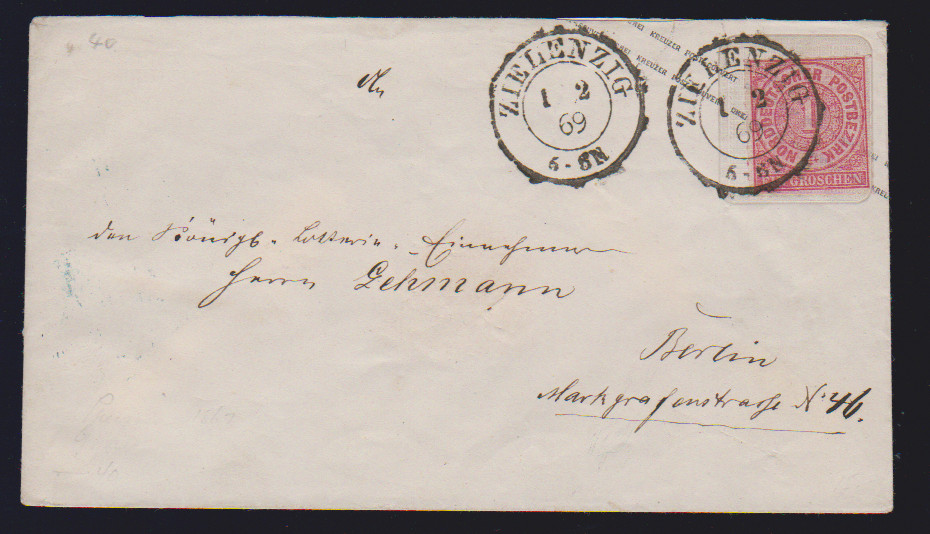 40
ZIELENZIG
1 2
69
5-8N
ZIELENZIG
1 2
69
5-8N
NORDDEUTSCHER POSTBEZIRK
1
EIN GROSCHEN
DREI KREUZER POSTCOUVERT
An
den Königl. Lotterie-Einnehmer
Herrn Lehmann
Berlin
Markgrafenstrasse No 46.